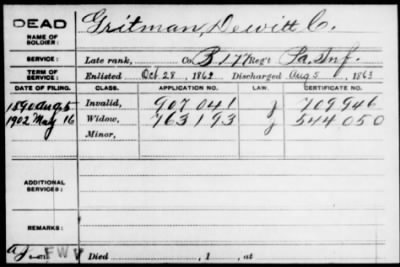 DEAD Gritman, Dewitt C.
NAME OF SOLDIER:
SERVICE: Late rank, Co. B 177 Reg't Pa. Inf.
TERM OF SERVICE: Enlisted Oct. 28, 1862 Discharged Aug 5, 1863
DATE OF FILING. CLASS. APPLICATION NO. LAW. CERTIFICATE NO.
1890 Aug. 5 Invalid, 907041 J 709946
1902 May 16 Widow, 763193 J 544050
Minor,
ADDITIONAL SERVICES:
REMARKS:
FWV Died , 1 , at